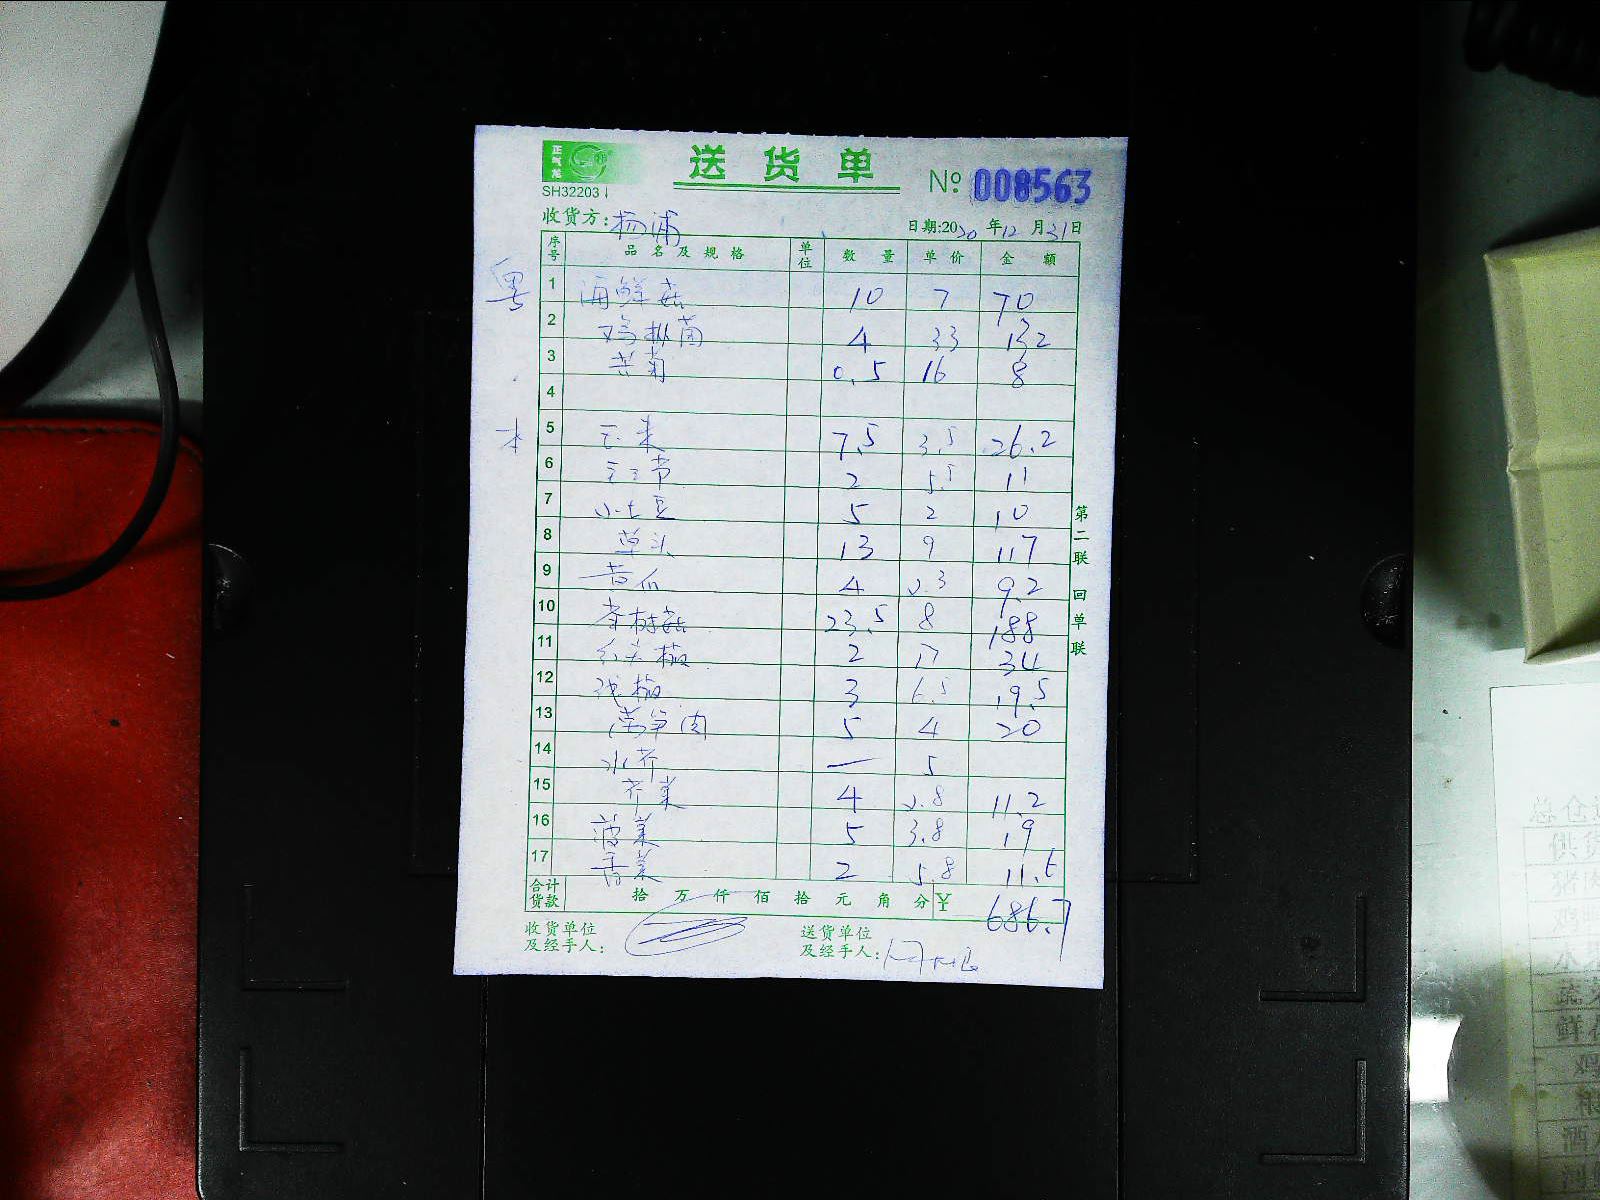 正气龙
送 货 单
№ 008563
SH32203
收货方: 杨浦
日期:2020 年12 月31日
序号 品 名 及 规 格 单位 数 量 单 价 金 额
粤
1 海鲜菇 10 7 70
2 鸡枞菌 4 33 132
3 苦菊 0.5 16 8
4
本
5 玉米 7.5 3.5 26.2
6 2 5.5 11
7 小土豆 5 2 10
8 草头 13 9 117
9 黄瓜 4 2.3 9.2
10 茶树菇 23.5 8 188
11 红尖椒 2 17 34
12 线椒 3 6.5 19.5
13 莴笋肉 5 4 20
14 水芹 — 5
15 芹菜 4 2.8 11.2
16 菠菜 5 3.8 19
17 香菜 2 5.8 11.6
合计货款 拾 万 仟 佰 拾 元 角 分 ¥ 686.7
收货单位
及经手人:
送货单位
及经手人:
第二联 回单联
总仓
供货